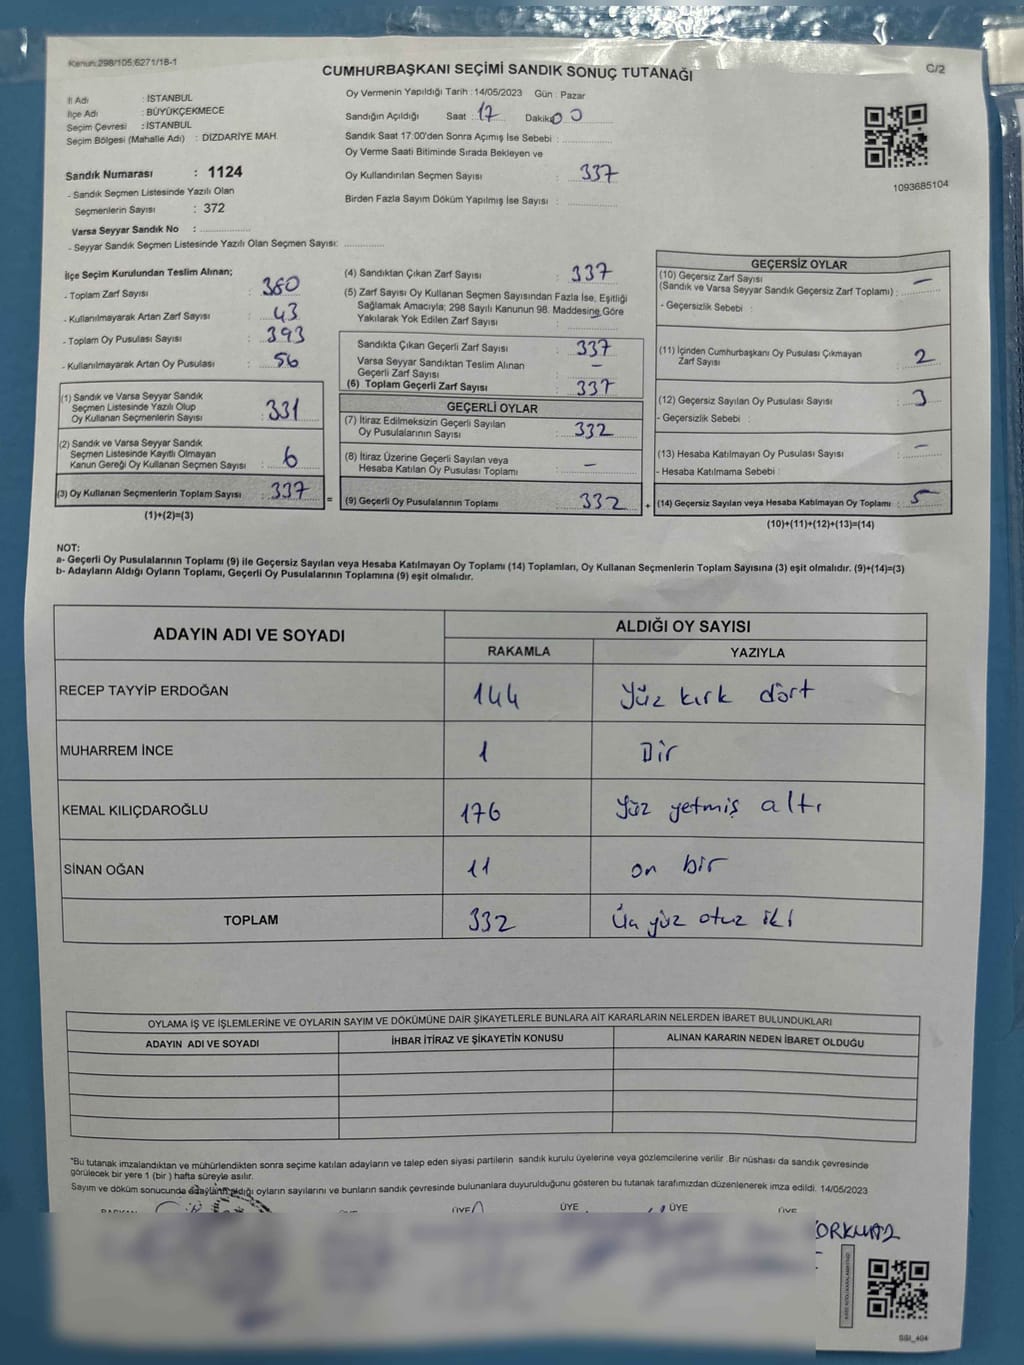 Kanun:298/105,6271/16-1
CUMHURBAŞKANI SEÇİMİ SANDIK SONUÇ TUTANAĞI
C/2
İl Adı : İSTANBUL
İlçe Adı : BÜYÜKÇEKMECE
Seçim Çevresi : İSTANBUL
Seçim Bölgesi (Mahalle Adı) : DİZDARİYE MAH.
Sandık Numarası : 1124
- Sandık Seçmen Listesinde Yazılı Olan
Seçmenlerin Sayısı : 372
Varsa Seyyar Sandık No :
- Seyyar Sandık Seçmen Listesinde Yazılı Olan Seçmen Sayısı:
Oy Vermenin Yapıldığı Tarih : 14/05/2023 Gün : Pazar
Sandığın Açıldığı Saat : 17 Dakika 00
Sandık Saat 17:00'den Sonra Açımış İse Sebebi :
Oy Verme Saati Bitiminde Sırada Bekleyen ve
Oy Kullandırılan Seçmen Sayısı : 337
Birden Fazla Sayım Döküm Yapılmış İse Sayısı :
1093685104
İlçe Seçim Kurulundan Teslim Alınan;
- Toplam Zarf Sayısı : 380
- Kullanılmayarak Artan Zarf Sayısı : 43
- Toplam Oy Pusulası Sayısı : 393
- Kullanılmayarak Artan Oy Pusulası : 56
(1) Sandık ve Varsa Seyyar Sandık
Seçmen Listesinde Yazılı Olup
Oy Kullanan Seçmenlerin Sayısı : 331
(2) Sandık ve Varsa Seyyar Sandık
Seçmen Listesinde Kayıtlı Olmayan
Kanun Gereği Oy Kullanan Seçmen Sayısı : 6
(3) Oy Kullanan Seçmenlerin Toplam Sayısı : 337 =
(1)+(2)=(3)
(4) Sandıktan Çıkan Zarf Sayısı : 337
(5) Zarf Sayısı Oy Kullanan Seçmen Sayısından Fazla İse, Eşitliği
Sağlamak Amacıyla; 298 Sayılı Kanunun 98. Maddesine Göre
Yakılarak Yok Edilen Zarf Sayısı : –
Sandıkta Çıkan Geçerli Zarf Sayısı : 337
Varsa Seyyar Sandıktan Teslim Alınan
Geçerli Zarf Sayısı : –
(6) Toplam Geçerli Zarf Sayısı : 337
GEÇERLİ OYLAR
(7) İtiraz Edilmeksizin Geçerli Sayılan
Oy Pusulalarının Sayısı : 332
(8) İtiraz Üzerine Geçerli Sayılan veya
Hesaba Katılan Oy Pusulası Toplamı : –
(9) Geçerli Oy Pusulalarının Toplamı : 332 +
GEÇERSİZ OYLAR
(10) Geçersiz Zarf Sayısı
(Sandık ve Varsa Seyyar Sandık Geçersiz Zarf Toplamı) : –
- Geçersizlik Sebebi :
(11) İçinden Cumhurbaşkanı Oy Pusulası Çıkmayan
Zarf Sayısı : 2
(12) Geçersiz Sayılan Oy Pusulası Sayısı : 3
- Geçersizlik Sebebi :
(13) Hesaba Katılmayan Oy Pusulası Sayısı : –
- Hesaba Katılmama Sebebi :
(14) Geçersiz Sayılan veya Hesaba Katılmayan Oy Toplamı : 5
(10)+(11)+(12)+(13)=(14)
NOT:
a- Geçerli Oy Pusulalarının Toplamı (9) ile Geçersiz Sayılan veya Hesaba Katılmayan Oy Toplamı (14) Toplamları, Oy Kullanan Seçmenlerin Toplam Sayısına (3) eşit olmalıdır. (9)+(14)=(3)
b- Adayların Aldığı Oyların Toplamı, Geçerli Oy Pusulalarının Toplamına (9) eşit olmalıdır.
ADAYIN ADI VE SOYADI
ALDIĞI OY SAYISI
RAKAMLA YAZIYLA
RECEP TAYYİP ERDOĞAN 144 Yüz kırk dört
MUHARREM İNCE 1 Bir
KEMAL KILIÇDAROĞLU 176 Yüz yetmiş altı
SİNAN OĞAN 11 on bir
TOPLAM 332 Üç yüz otuz iki
OYLAMA İŞ VE İŞLEMLERİNE VE OYLARIN SAYIM VE DÖKÜMÜNE DAİR ŞİKAYETLERLE BUNLARA AİT KARARLARIN NELERDEN İBARET BULUNDUKLARI
ADAYIN ADI VE SOYADI İHBAR İTİRAZ VE ŞİKAYETİN KONUSU ALINAN KARARIN NEDEN İBARET OLDUĞU
*Bu tutanak imzalandıktan ve mühürlendikten sonra seçime katılan adayların ve talep eden siyasi partilerin sandık kurulu üyelerine veya gözlemcilerine verilir. Bir nüshası da sandık çevresinde
görülecek bir yere 1 (bir ) hafta süreyle asılır.
Sayım ve döküm sonucunda adayların aldığı oyların sayılarını ve bunların sandık çevresinde bulunanlara duyurulduğunu gösteren bu tutanak tarafımızdan düzenlenerek imza edildi. 14/05/2023
BAŞKAN ÜYE ÜYE ÜYE ÜYE ÜYE
ORKMAZ
SSI_404